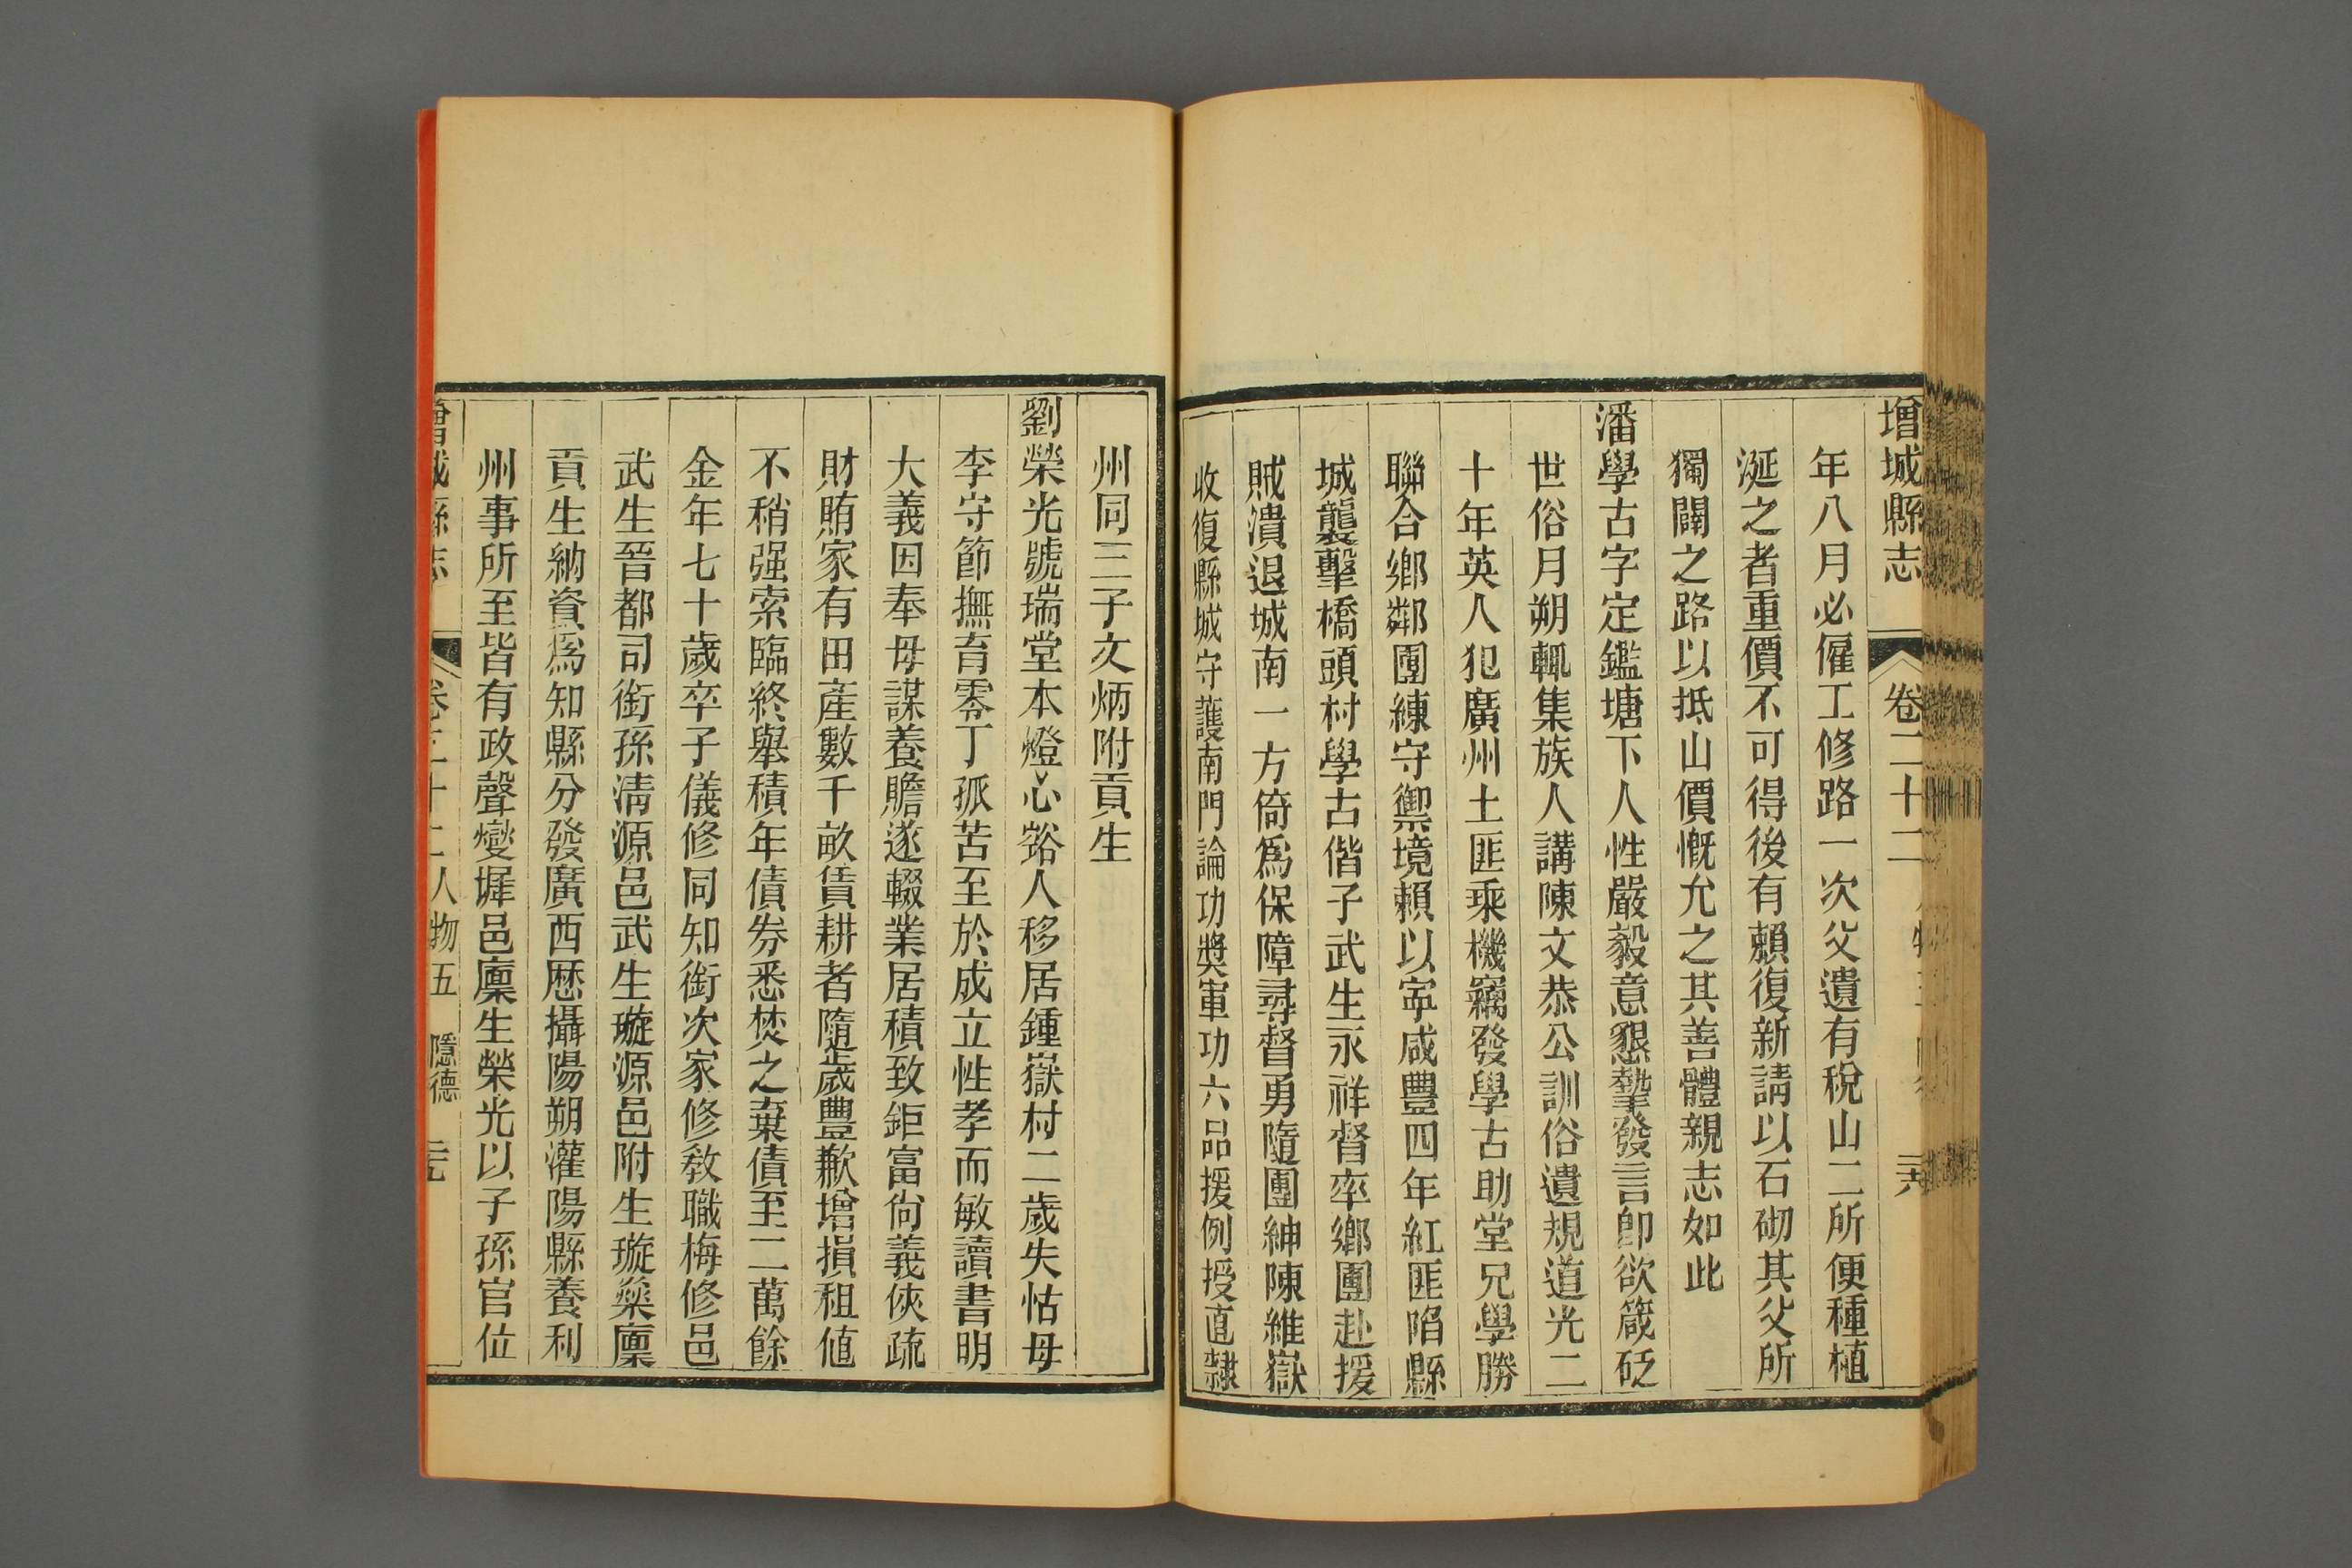 增城縣志 卷二十二
年八月必僱工修路一次父遺有稅山二所便種植
涎之者重價不可得後有賴復新請以石砌其父所
獨闢之路以抵山價慨允之其善體親志如此
潘學古字定鑑塘下人性嚴毅意懇摯發言卽欲箴砭
世俗月朔輒集族人講陳文恭公訓俗遺規道光二
十年英人犯廣州土匪乘機竊發學古助堂兄學勝
聯合鄉鄰團練守禦境賴以寧咸豐四年紅匪陷縣
城襲擊橋頭村學古偕子武生永祥督率鄉團赴援
賊潰退城南一方倚爲保障尋督勇隨團紳陳維嶽
收復縣城守護南門論功奬軍功六品援例授直隸
州同三子文炳附貢生
劉榮光號瑞堂本燈心谿人移居鍾嶽村二歲失怙母
李守節撫育零丁孤苦至於成立性孝而敏讀書明
大義因奉母謀養贍遂輟業居積致鉅富尙義俠疏
財賄家有田產數千畝賃耕者隨歲豐歉增損租値
不稍强索臨終舉積年債券悉焚之棄債至二萬餘
金年七十歲卒子儀修同知銜次家修敎職梅修邑
武生晉都司銜孫淸源邑武生璇源邑附生璇藥廩
貢生納資爲知縣分發廣西歷攝陽朔灌陽縣養利
州事所至皆有政聲燮墀邑廩生榮光以子孫官位
增城縣志 卷二十二人物五 隱德